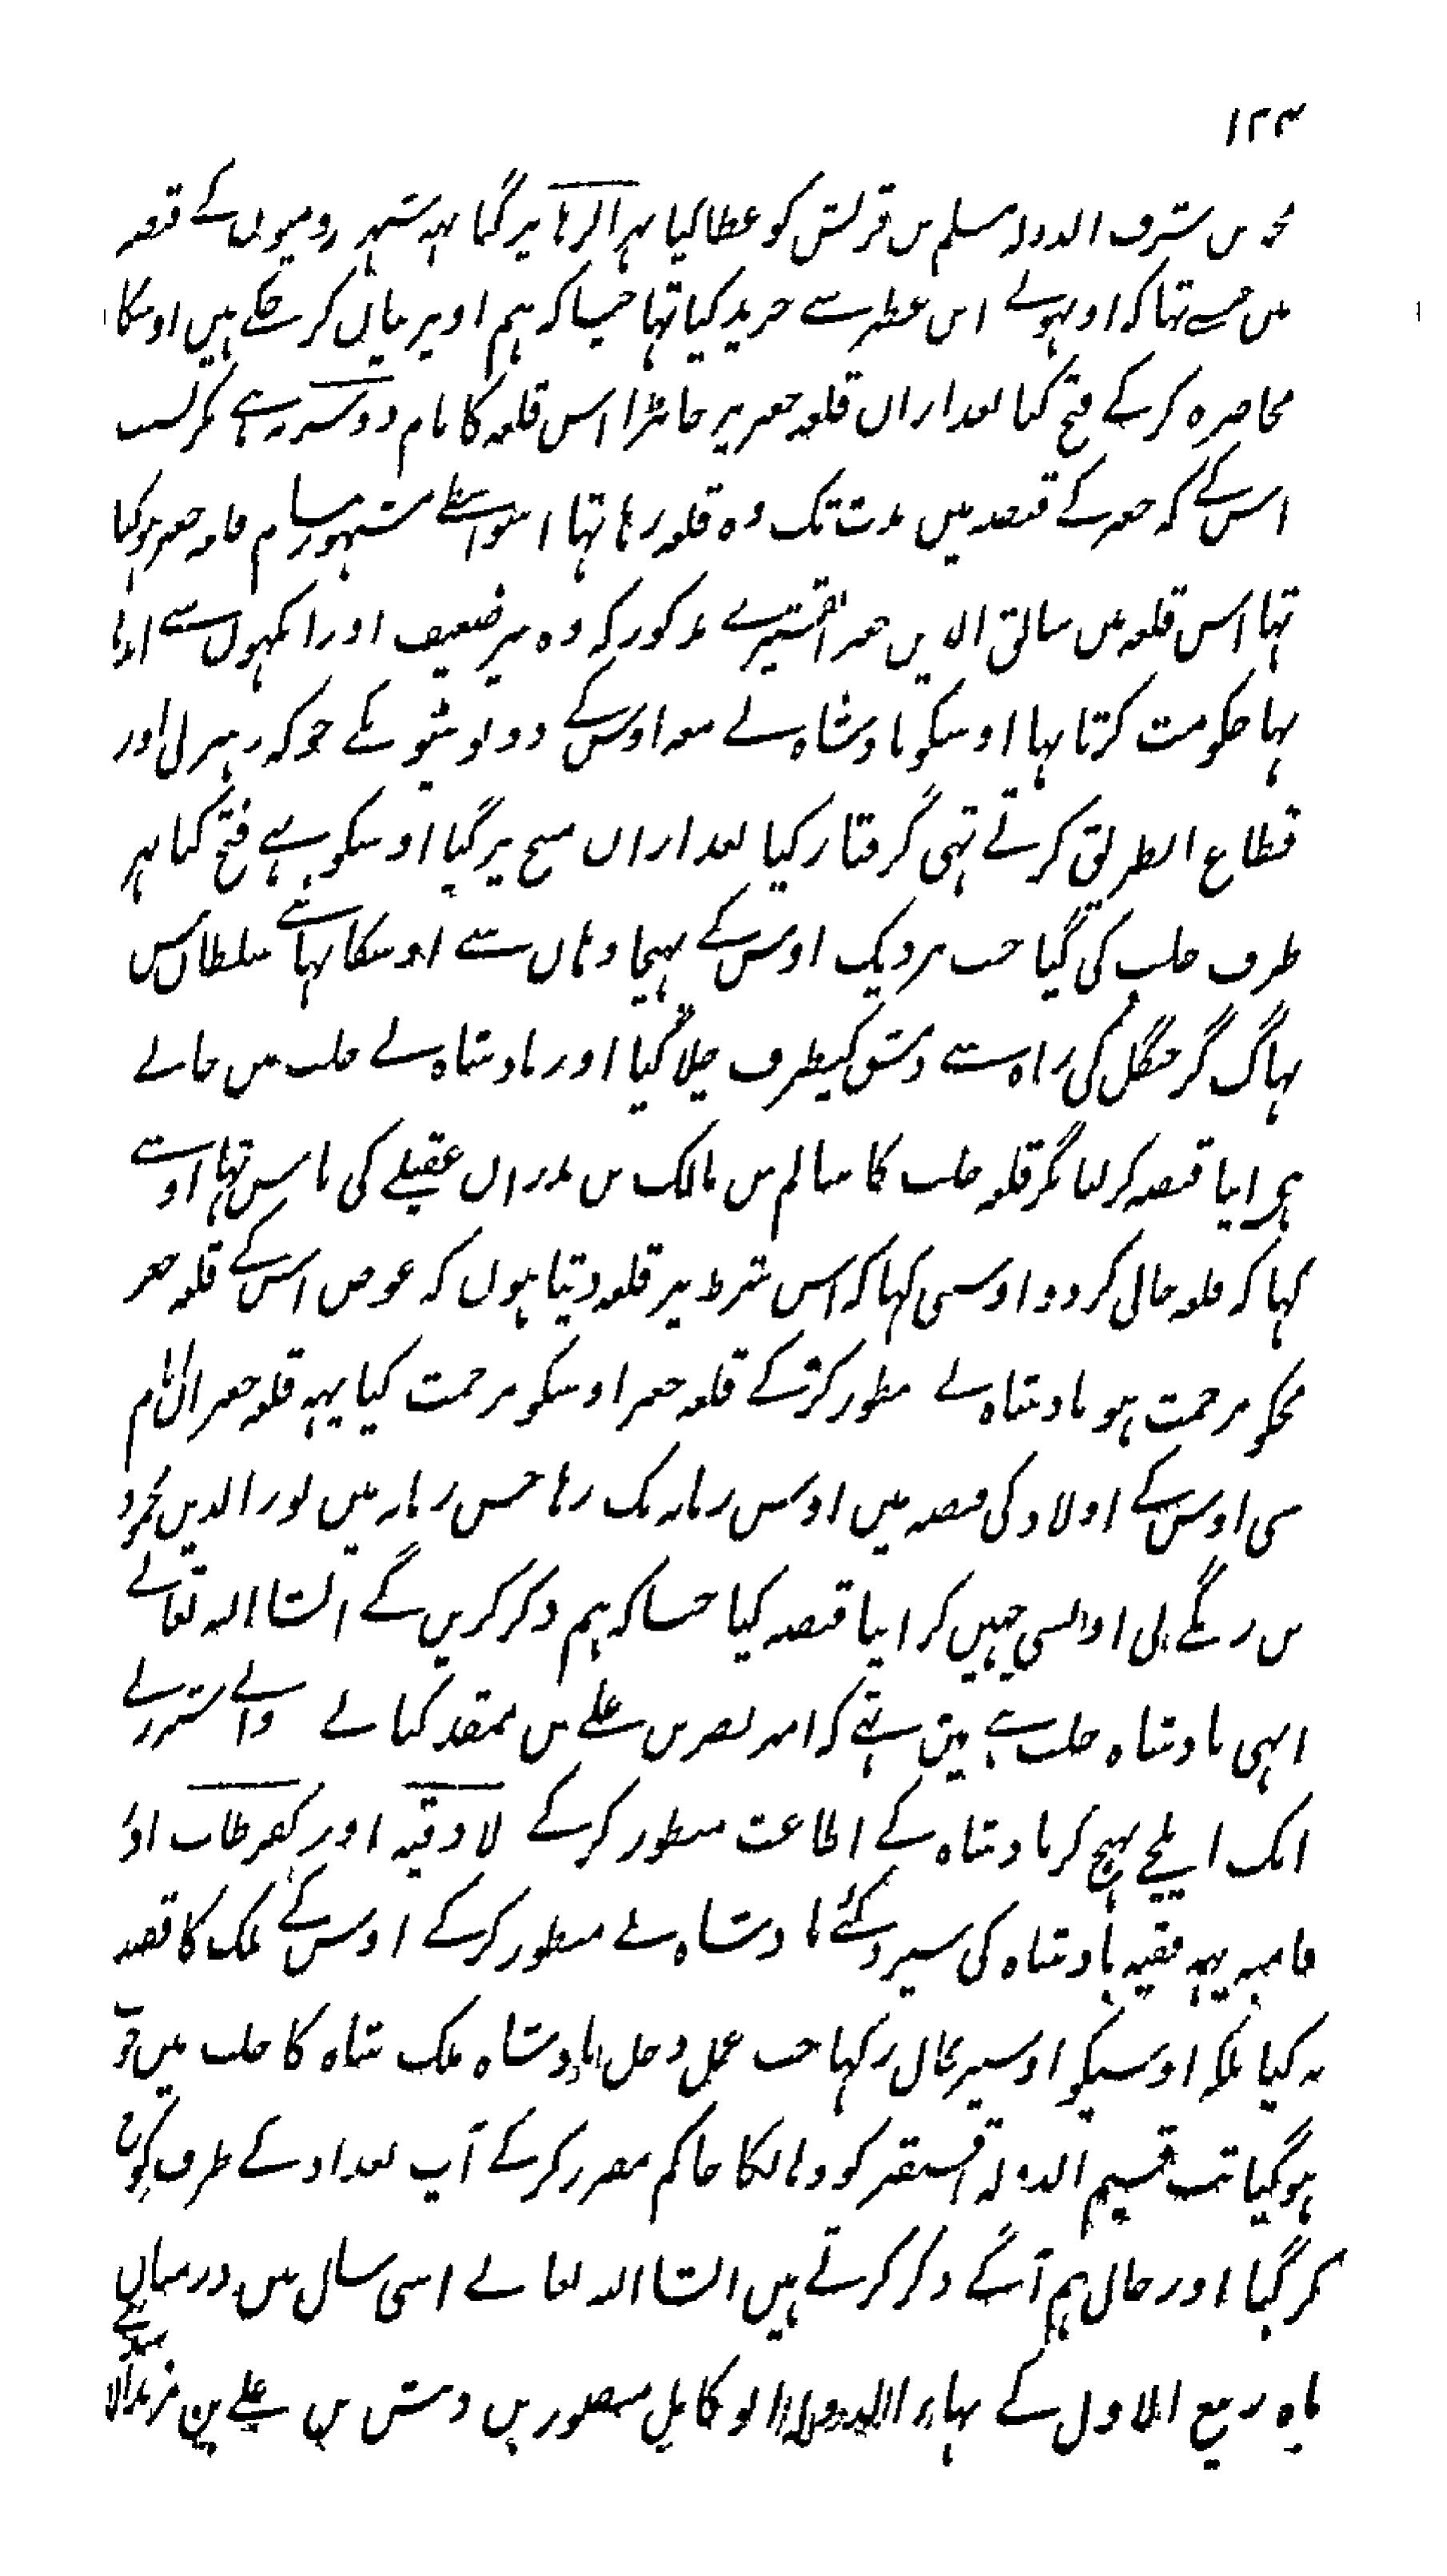 ۱۲۳
محمد بن شرف الدولہ مسلم بن قریش کو عطا کیا پہر الرہا پر گیا یہہ شہر رومیوں کے قبضہ
میں تہا کہ اونہوں نے ابن عطیر سے خرید کیا تہا جیسا کہ ہم اوپر بیان کر چکے ہیں اوسکا
محاصرہ کر کے فتح کیا بعد ازاں قلعہ جعبر پر جا پڑا اس قلعہ کا نام دوسریہ ہے مگر بسبب
اس کے کہ جعبر کے قبضہ میں مدت تک وہ قلعہ رہا تہا اسواسطے مشہور بنام قلعہ جعبر ہو گیا
تہا اس قلعہ میں سابق الدین جعبر القشیری مذکور کہ وہ پیر ضعیف اور انکہوں سے اندہا
تہا حکومت کرتا تہا اوسکو بادشاہ نے معہ اوس کے دو بیٹو کے جو کہ رہزنی اور
قطاع الطریق کرتے تہی گرفتار کیا بعد ازاں منبج پر گیا اوسکو بہے فتح کیا پہر
طرف حلب کی گیا جب نزدیک اوس کے پہنچا وہاں سے اوسکا بہائے سلطان تتش
بہاگ کر جنگل کی راہ سے دمشق کیطرف چلا گیا اور بادشاہ نے حلب میں جاتے
ہی اپنا قبضہ کر لیا مگر قلعہ حلب کا سالم بن مالک بن بدران عقیلے کی پاس تہا اوسے
کہا کہ قلعہ خالی کر دو اوسی کہا کہ اس شرط پر قلعہ دیتا ہوں کہ عوض اس کے قلعہ جعبر
مجکو مرحمت ہو بادشاہ نے منظور کر کے قلعہ جعبر اوسکو مرحمت کیا یہہ قلعہ جعبر
اوس کے اولاد کی قبضہ میں اوس زمانہ تک رہا جس زمانہ میں نور الدین محمود
بن زنگے نی اونسی چہین کر اپنا قبضہ کیا جیسا کہ ہم ذکر کریں گے انشا اللہ تعالے
ابہی بادشاہ حلب ہے میں تہے کہ امیر نصر بن علے بن منقذ کنانے والے شیزر نے
ایک ایلچے بہیج کر بادشاہ کے اطاعت منظور کر کے لاذقیہ اور کفرطاب اور
فامیہ یہہ بقیہ بادشاہ کی سپرد کئے بادشاہ نے منظور کر کے اوس کے ملک کا قصد
نہ کیا بلکہ اوسیکو اوسپر بحال رکہا جب عمل دخل بادشاہ ملک شاہ کا حلب میں خوب
ہو گیا تب قسیم الدولہ اقسنقر کو وہانکا حاکم مقرر کر کے آپ بغداد کے طرف کوچ
کر گیا اور حال ہم آگے ذکر کرتے ہیں انشا اللہ تعالے اسی سال میں درمیان
ماہ ربیع الاول کے بہاء الدولہ ابو کامل منصور بن دبیس بن علے بن مزید الاسدے